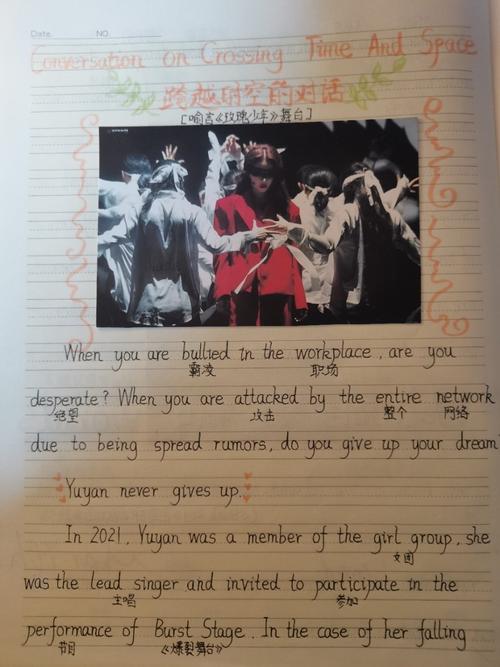 Date. NO.
Conversation on Crossing Time And Space
跨越时空的对话
[喻言《玫瑰少年》舞台]
When you are bullied in the workplace, are you
霸凌 职场
desperate? When you are attacked by the entire network
绝望 攻击 整个 网络
due to being spread rumors, do you give up your dream
Yuyan never gives up.
In 2021, Yuyan was a member of the girl group, she
女团
was the lead singer and invited to participate in the
主唱 参加
performance of Burst Stage. In the case of her falling
节目 《爆裂舞台》